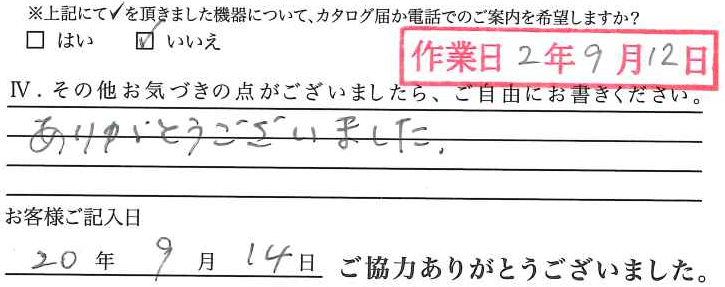 ※上記にて✓を頂きました機器について、カタログ届か電話でのご案内を希望しますか?
□ はい ☑ いいえ
作業日 2年9月12日
Ⅳ. その他お気づきの点がございましたら、ご自由にお書きください。
ありがとうございました.
お客様ご記入日
20年 9月 14日 ご協力ありがとうございました。